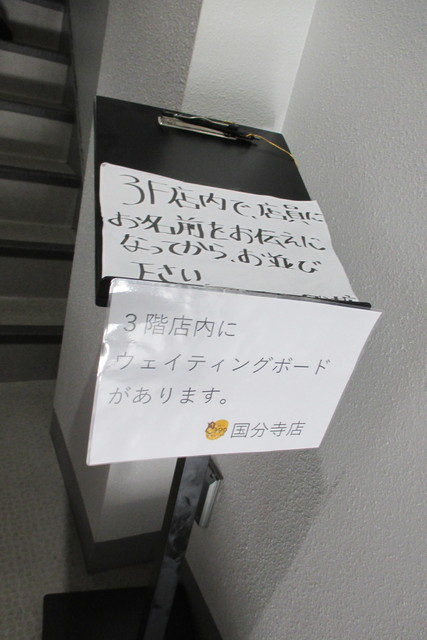 3F店内で、店員に
お名前をお伝えに
なってから、お並び
下さい
3階店内に
ウェイティングボード
があります。
国分寺店